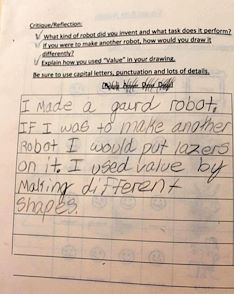 Critique/Reflection:
What kind of robot did you invent and what task does it perform?
If you were to make another robot, how would you draw it
differently?
Explain how you used "Value" in your drawing.
Be sure to use capital letters, punctuation and lots of details.
I made a gaurd robot.
IF I was to make another
Robot I would put lazers
on it. I used value by
Making different
shapes.